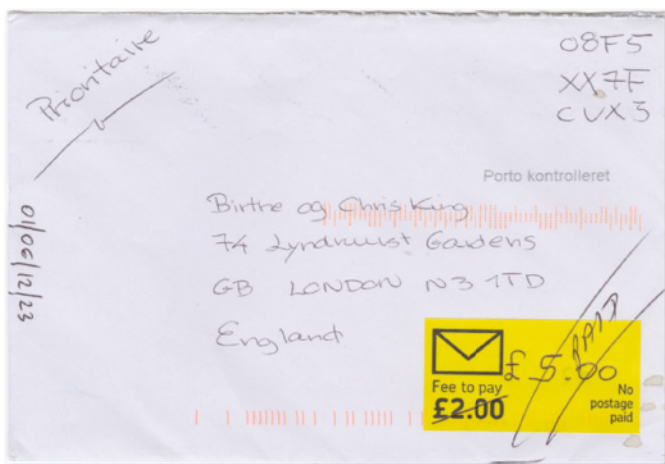 Prioritaire
08F5
XX7F
CUX5
Porto kontrolleret
Birthe og Chris King
74 Lyndhurst Gardens
GB LONDON N3 1TD
England
01/06/12/23
PAID
£ 5.00
Fee to pay
£2.00
No
postage
paid